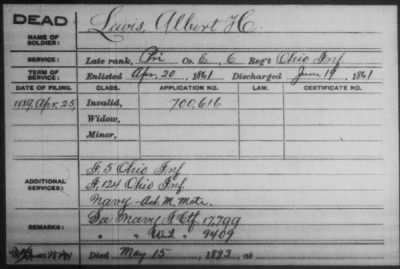 DEAD
NAME OF SOLDIER: Lewis, Albert H.
SERVICE: Late rank, Pri Co. E, 6 Reg't Ohio Inf
TERM OF SERVICE: Enlisted Apr. 20, 1861 Discharged June 19, 1861
DATE OF FILING. CLASS. APPLICATION NO. CERTIFICATE NO.
1889, Apr. 25, Invalid, 700,616
Widow,
Minor,
F. 5 Ohio Inf
ADDITIONAL SERVICES: I, 124 Ohio Inf
Navy - Act. M. Mate.
REMARKS: See Navy S. Ctf. 17,799
" " 9409
Died May 15, 1893, at